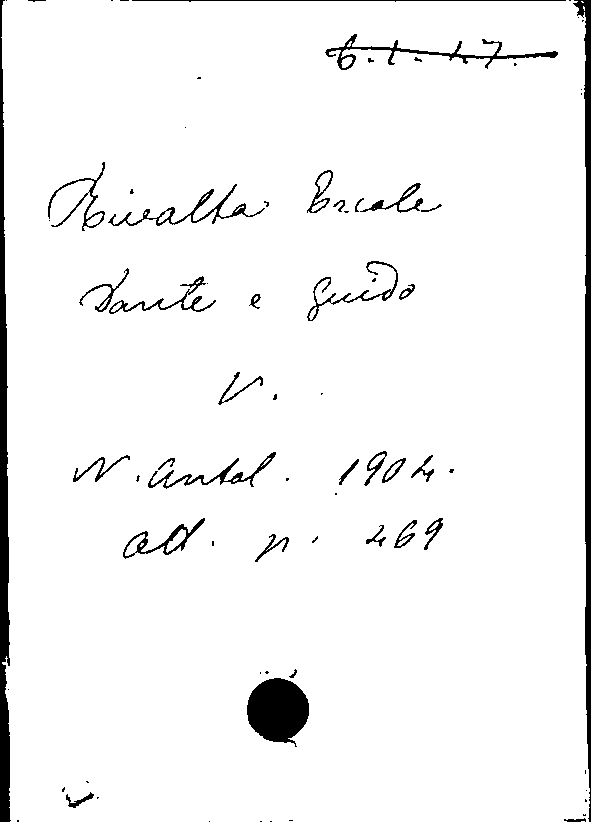 6.1.47.
Rivalta Ercole
Dante e Guido
V.
N. Antol. 1904.
Ott. p. 469